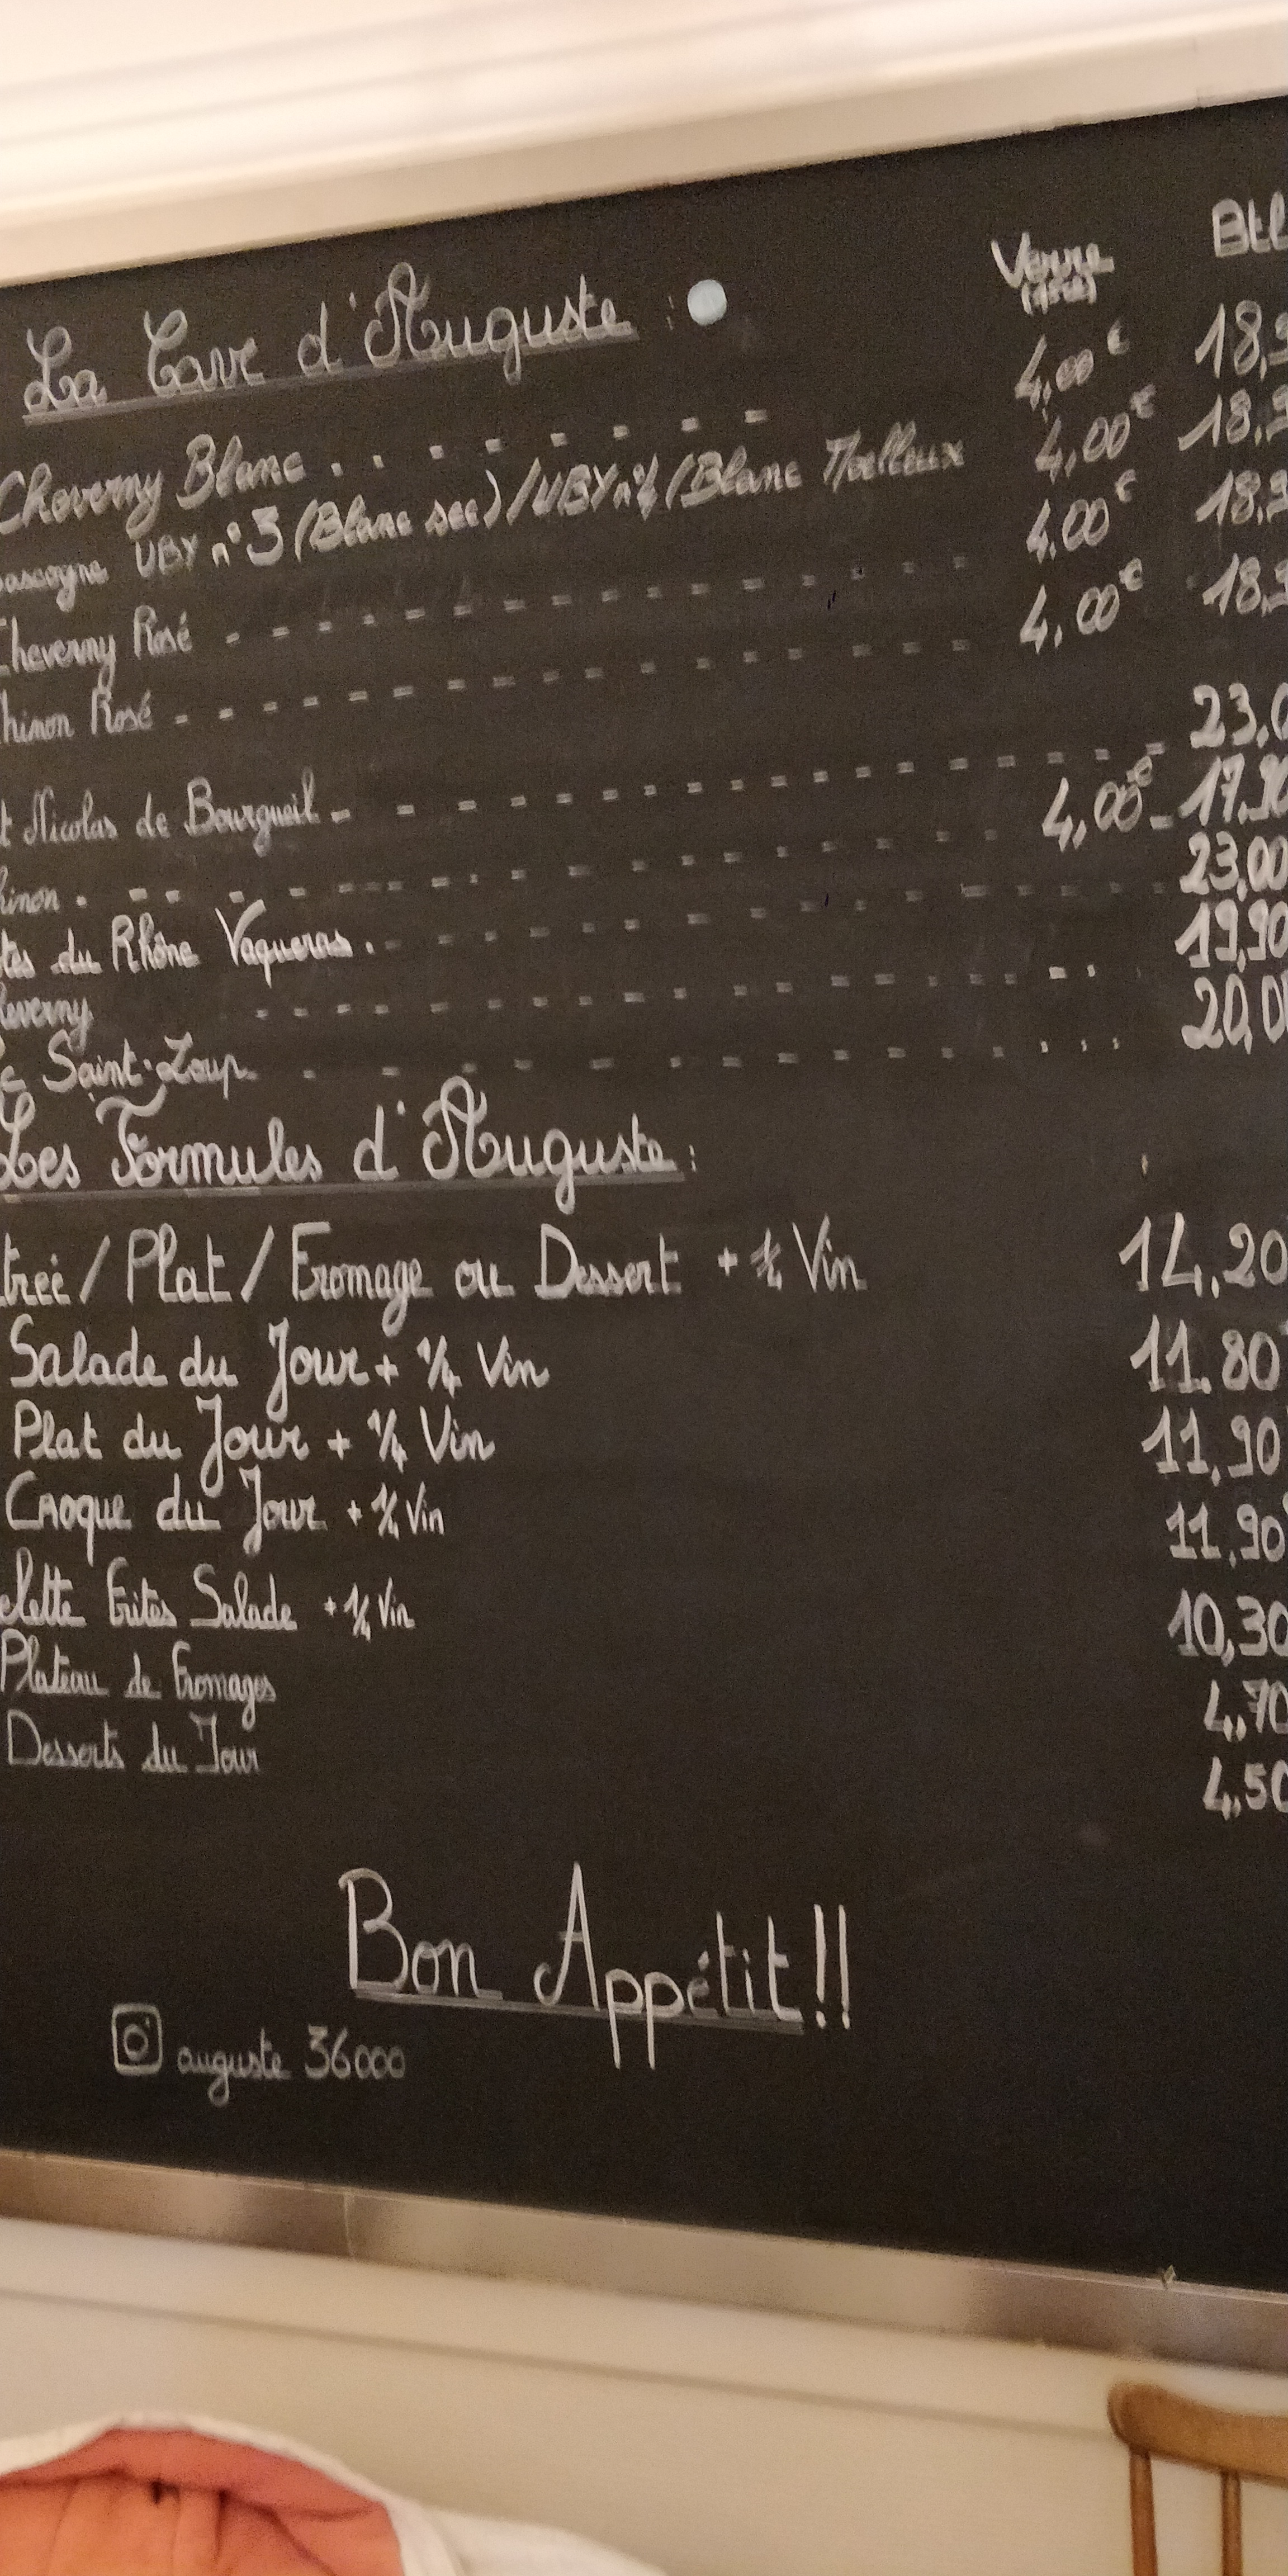 La Cave d'Auguste :
Verre Btl
Cheverny Blanc 4,00€ 18,
UBY n°3 (Blanc sec) / UBY n°4 (Blanc Moelleux 4,00€ 18,
Cheverny Rosé 4,00€ 18,
hinon Rosé 4,00€ 18,
t Nicolas de Bourgueil 23,0
hinon 4,00€ 17,90
tes du Rhône Vaqueras 23,00
everny 19,90
c Saint-Loup 20,0
Les Formules d'Auguste :
trée / Plat / Fromage ou Dessert + ¼ Vin 14,20
Salade du Jour + ¼ Vin 11.80
Plat du Jour + ¼ Vin 11,90
Croque du Jour + ¼ Vin 11,90
elette Frites Salade + ¼ Vin 10,30
Plateau de Fromages 4,70
Desserts du Jour 4,50
Bon Appétit !!
auguste 36000